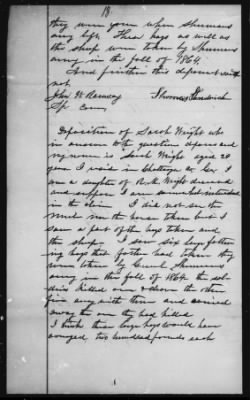 18
they were gone when Shermans
army left. These hogs as well as
the sheep were taken by Shermans
army in the fall of 1864.
And further this deponent saith
not
John W Ramsay Thomas
Sp. Com
Deposition of Sarah Wright who
in answer to the question deposes and
my name is Sarah Wright aged 29
years I reside in Chattooga Co Ga I
am a daughter of R. A. Wright deceased
and suppose I am somewhat interested
in the claim I did not see the
mule nor the horse taken but I
saw a part of the hogs taken and
the sheep. I saw six large fatten
ing hogs that father had taken they
were taken by Genl Shermans
army in the fall of 1864 the sol
diers killed one & drove the other
five away with them and carried
away the one they had killed
I think these large hogs would have
averaged two hundred pounds each